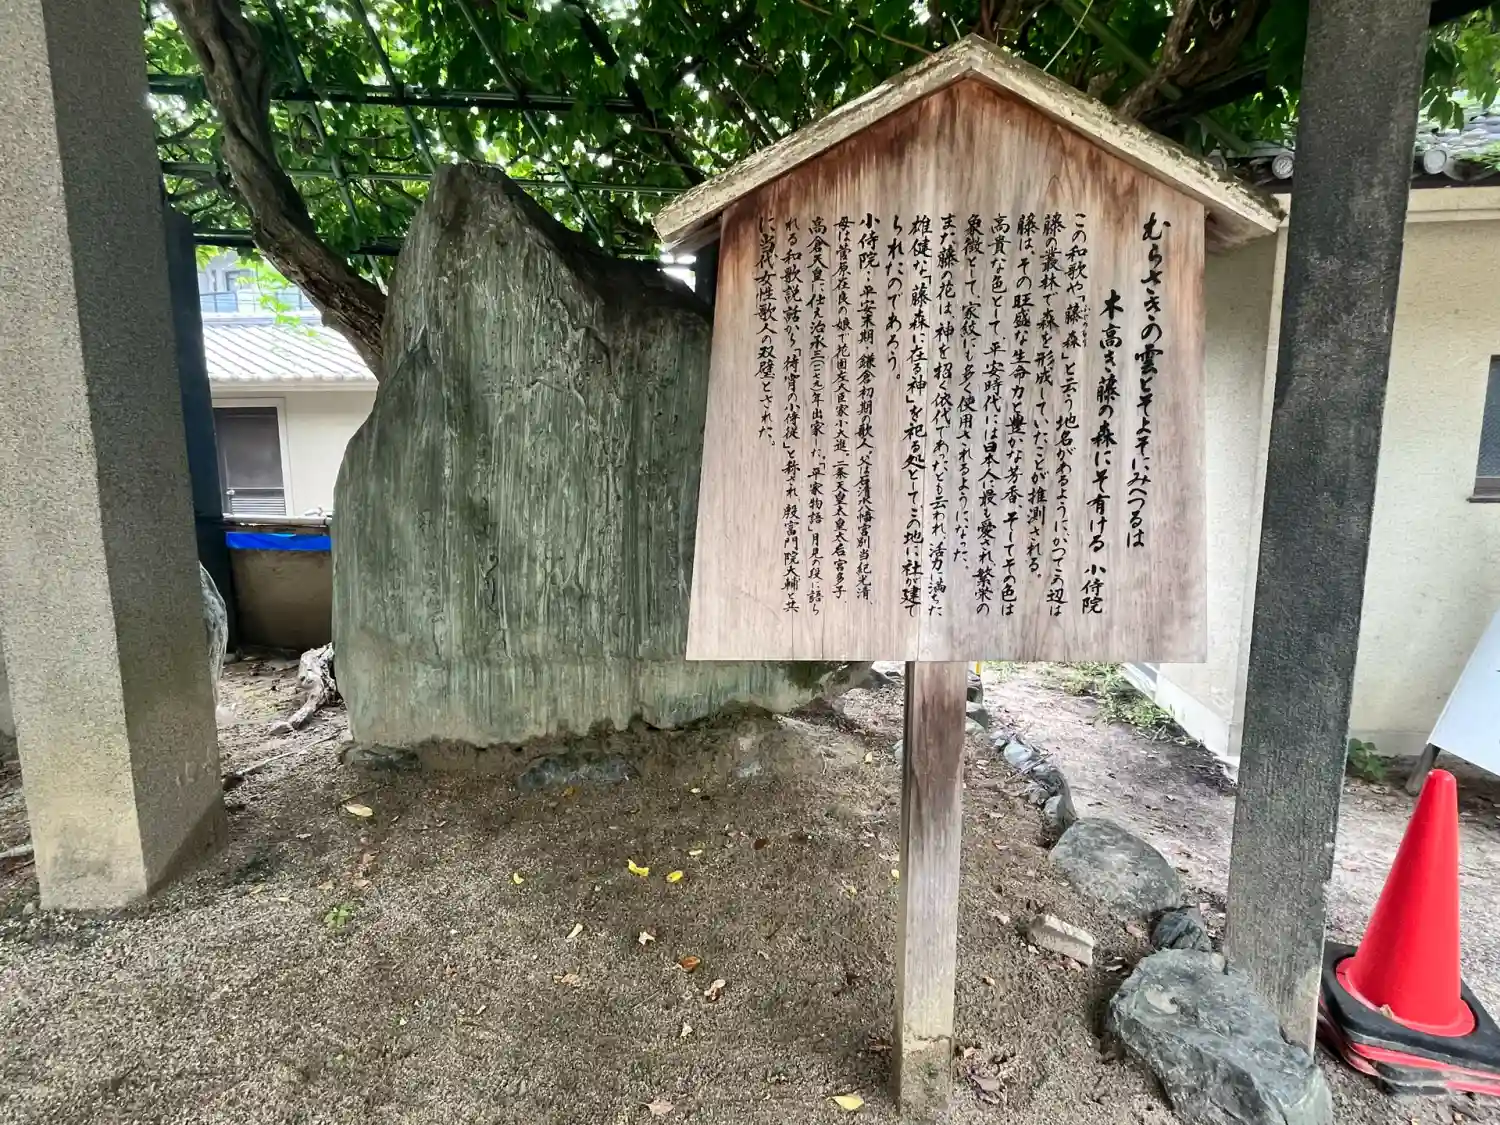 むらさきの雲とそよそにみへつるは
木高き藤の森にそ有ける 小侍院
この和歌や「藤森」と云う地名があるように、かつてこの辺は
ふじのもり
藤の叢林で森を形成していたことが推測される。
藤は、その旺盛な生命力と豊かな芳香、そしてその色は
高貴な色として、平安時代には日本人に最も愛され、繁栄の
象徴として、家紋にも多く使用されるようになった。
また藤の花は、神を招く依代であったとも云われ、活力に満ちた
雄健な「藤森に在る神」を祀る処としてこの地に社が建て
られたのであろう。
小侍院・平安末期・鎌倉初期の歌人、父は石清水八幡宮別当紀光清、
母は菅原在良の娘で花園左大臣家小大進。二条天皇太皇太后宮多子、
高倉天皇に仕え治承三(一一七九)年出家した。「平家物語」月見の段に語ら
れる和歌説話から「待宵の小侍従」と称され、殷富門院大輔と共
に当代女性歌人の双璧とされた。